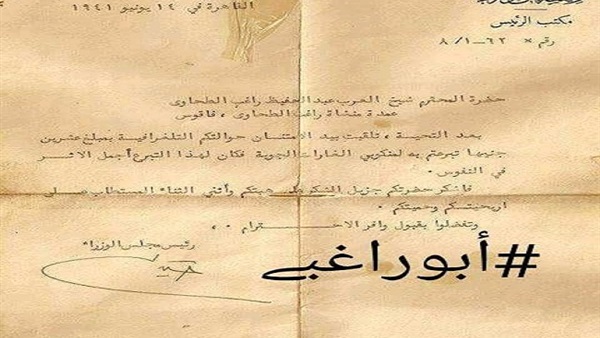 القاهرة في ١٤ يونيو ١٩٤١
مكتب الرئيس
رقم × ٦٢-٨/١
حضرة المحترم شيخ العرب عبدالحفيظ راغب الطحاوى
عمدة منشاة راغب الطحاوى ، فاقوس
بعد التحية ، تلقيت بيد الامتنان حوالتكم التلغرافية بمبلغ عشرين
جنيها تبرعتم به لمنكوبي الغارات الجوية فكان لهذا التبرع أجمل الاثر
في النفوس .
فاشكر حضرتكم جزيل الشكر على هبتكم وأثني الثناء المستطاب على
اريحيتكم وحميتكم .
وتفضلوا بقبول وافر الاحترام ،،
رئيس مجلس الوزراء
#أبوراغب